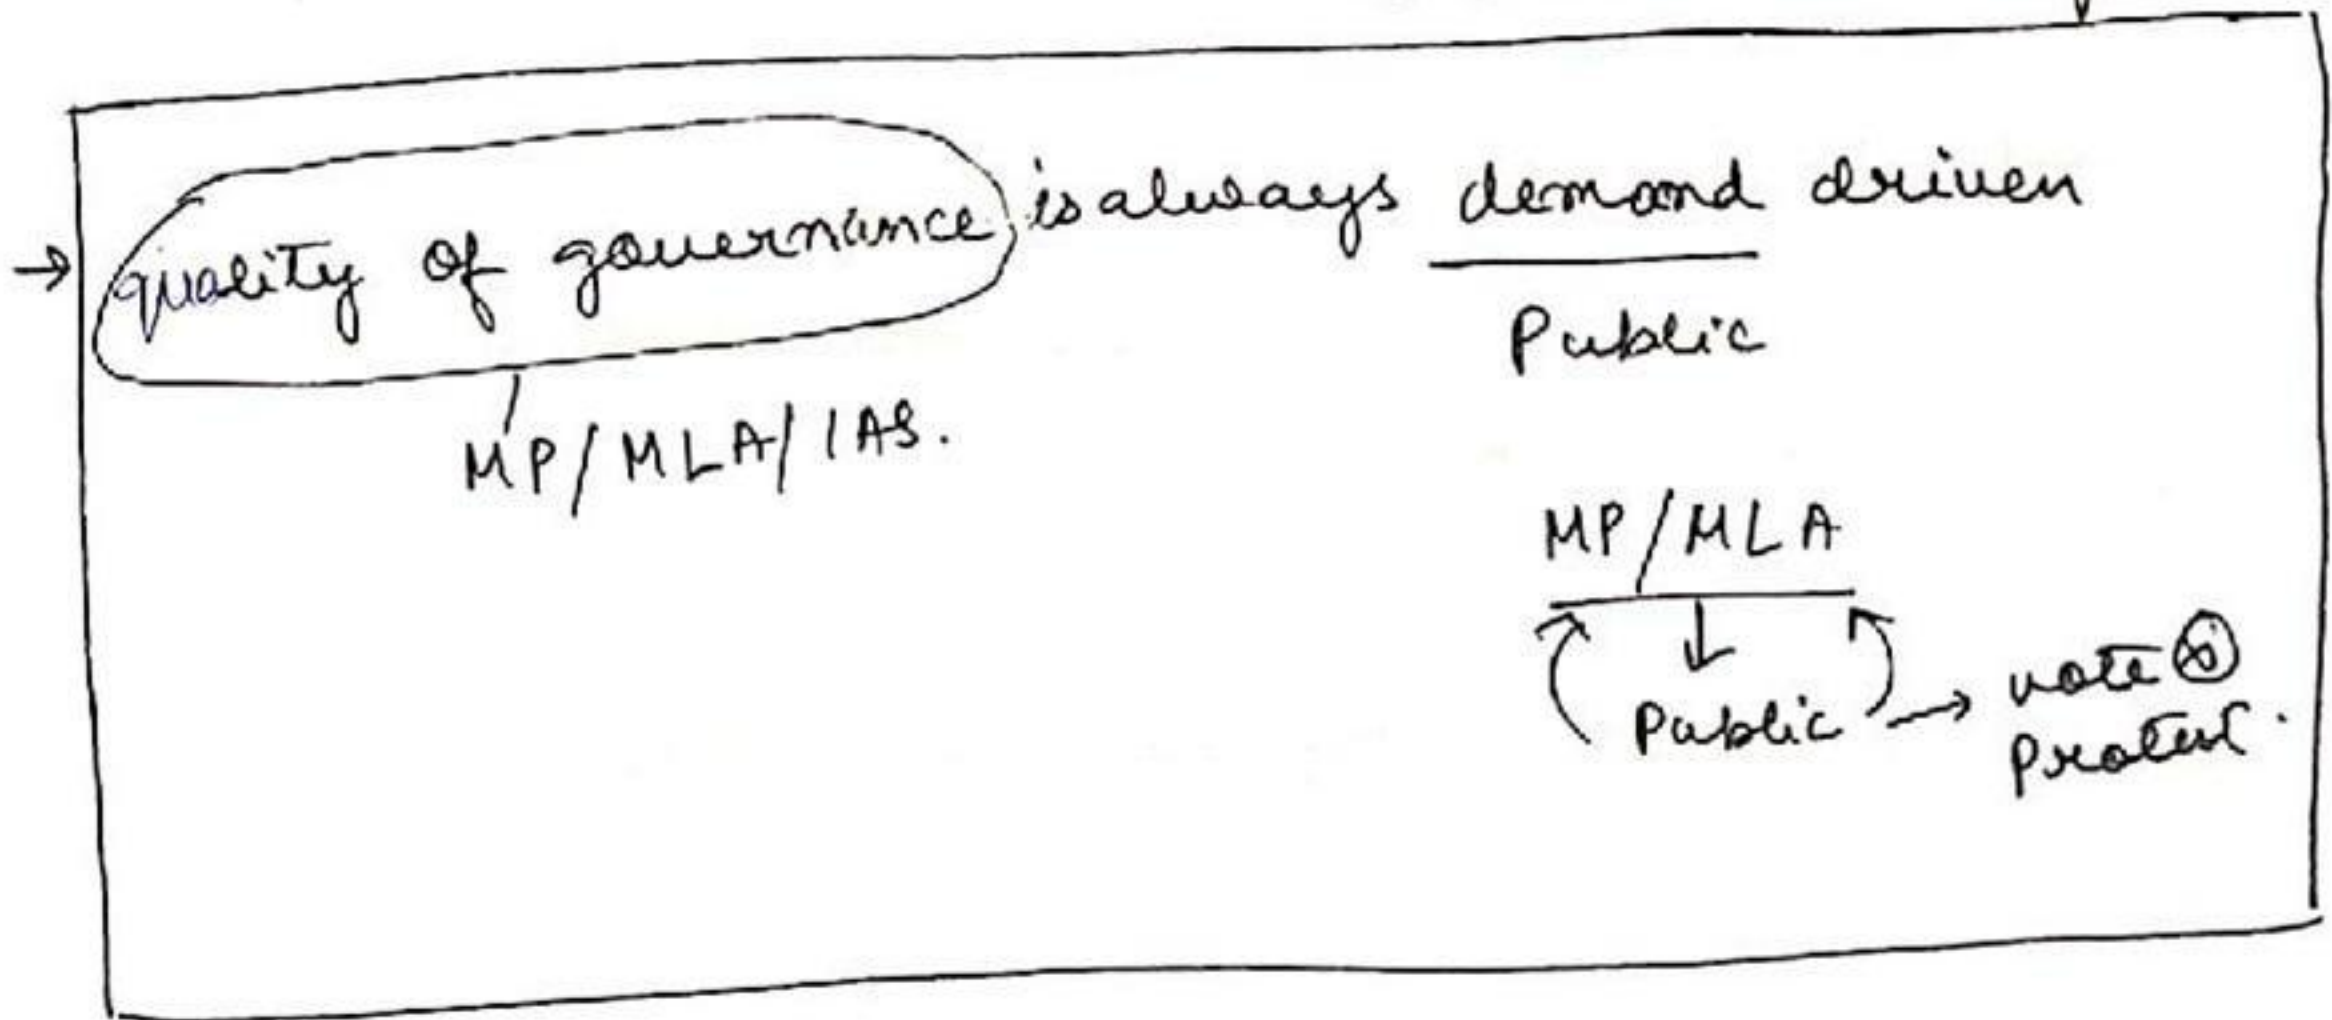 → quality of governance is always demand driven
Public
MP/MLA/IAS.
MP/MLA
↓
Public → vote
Protest.